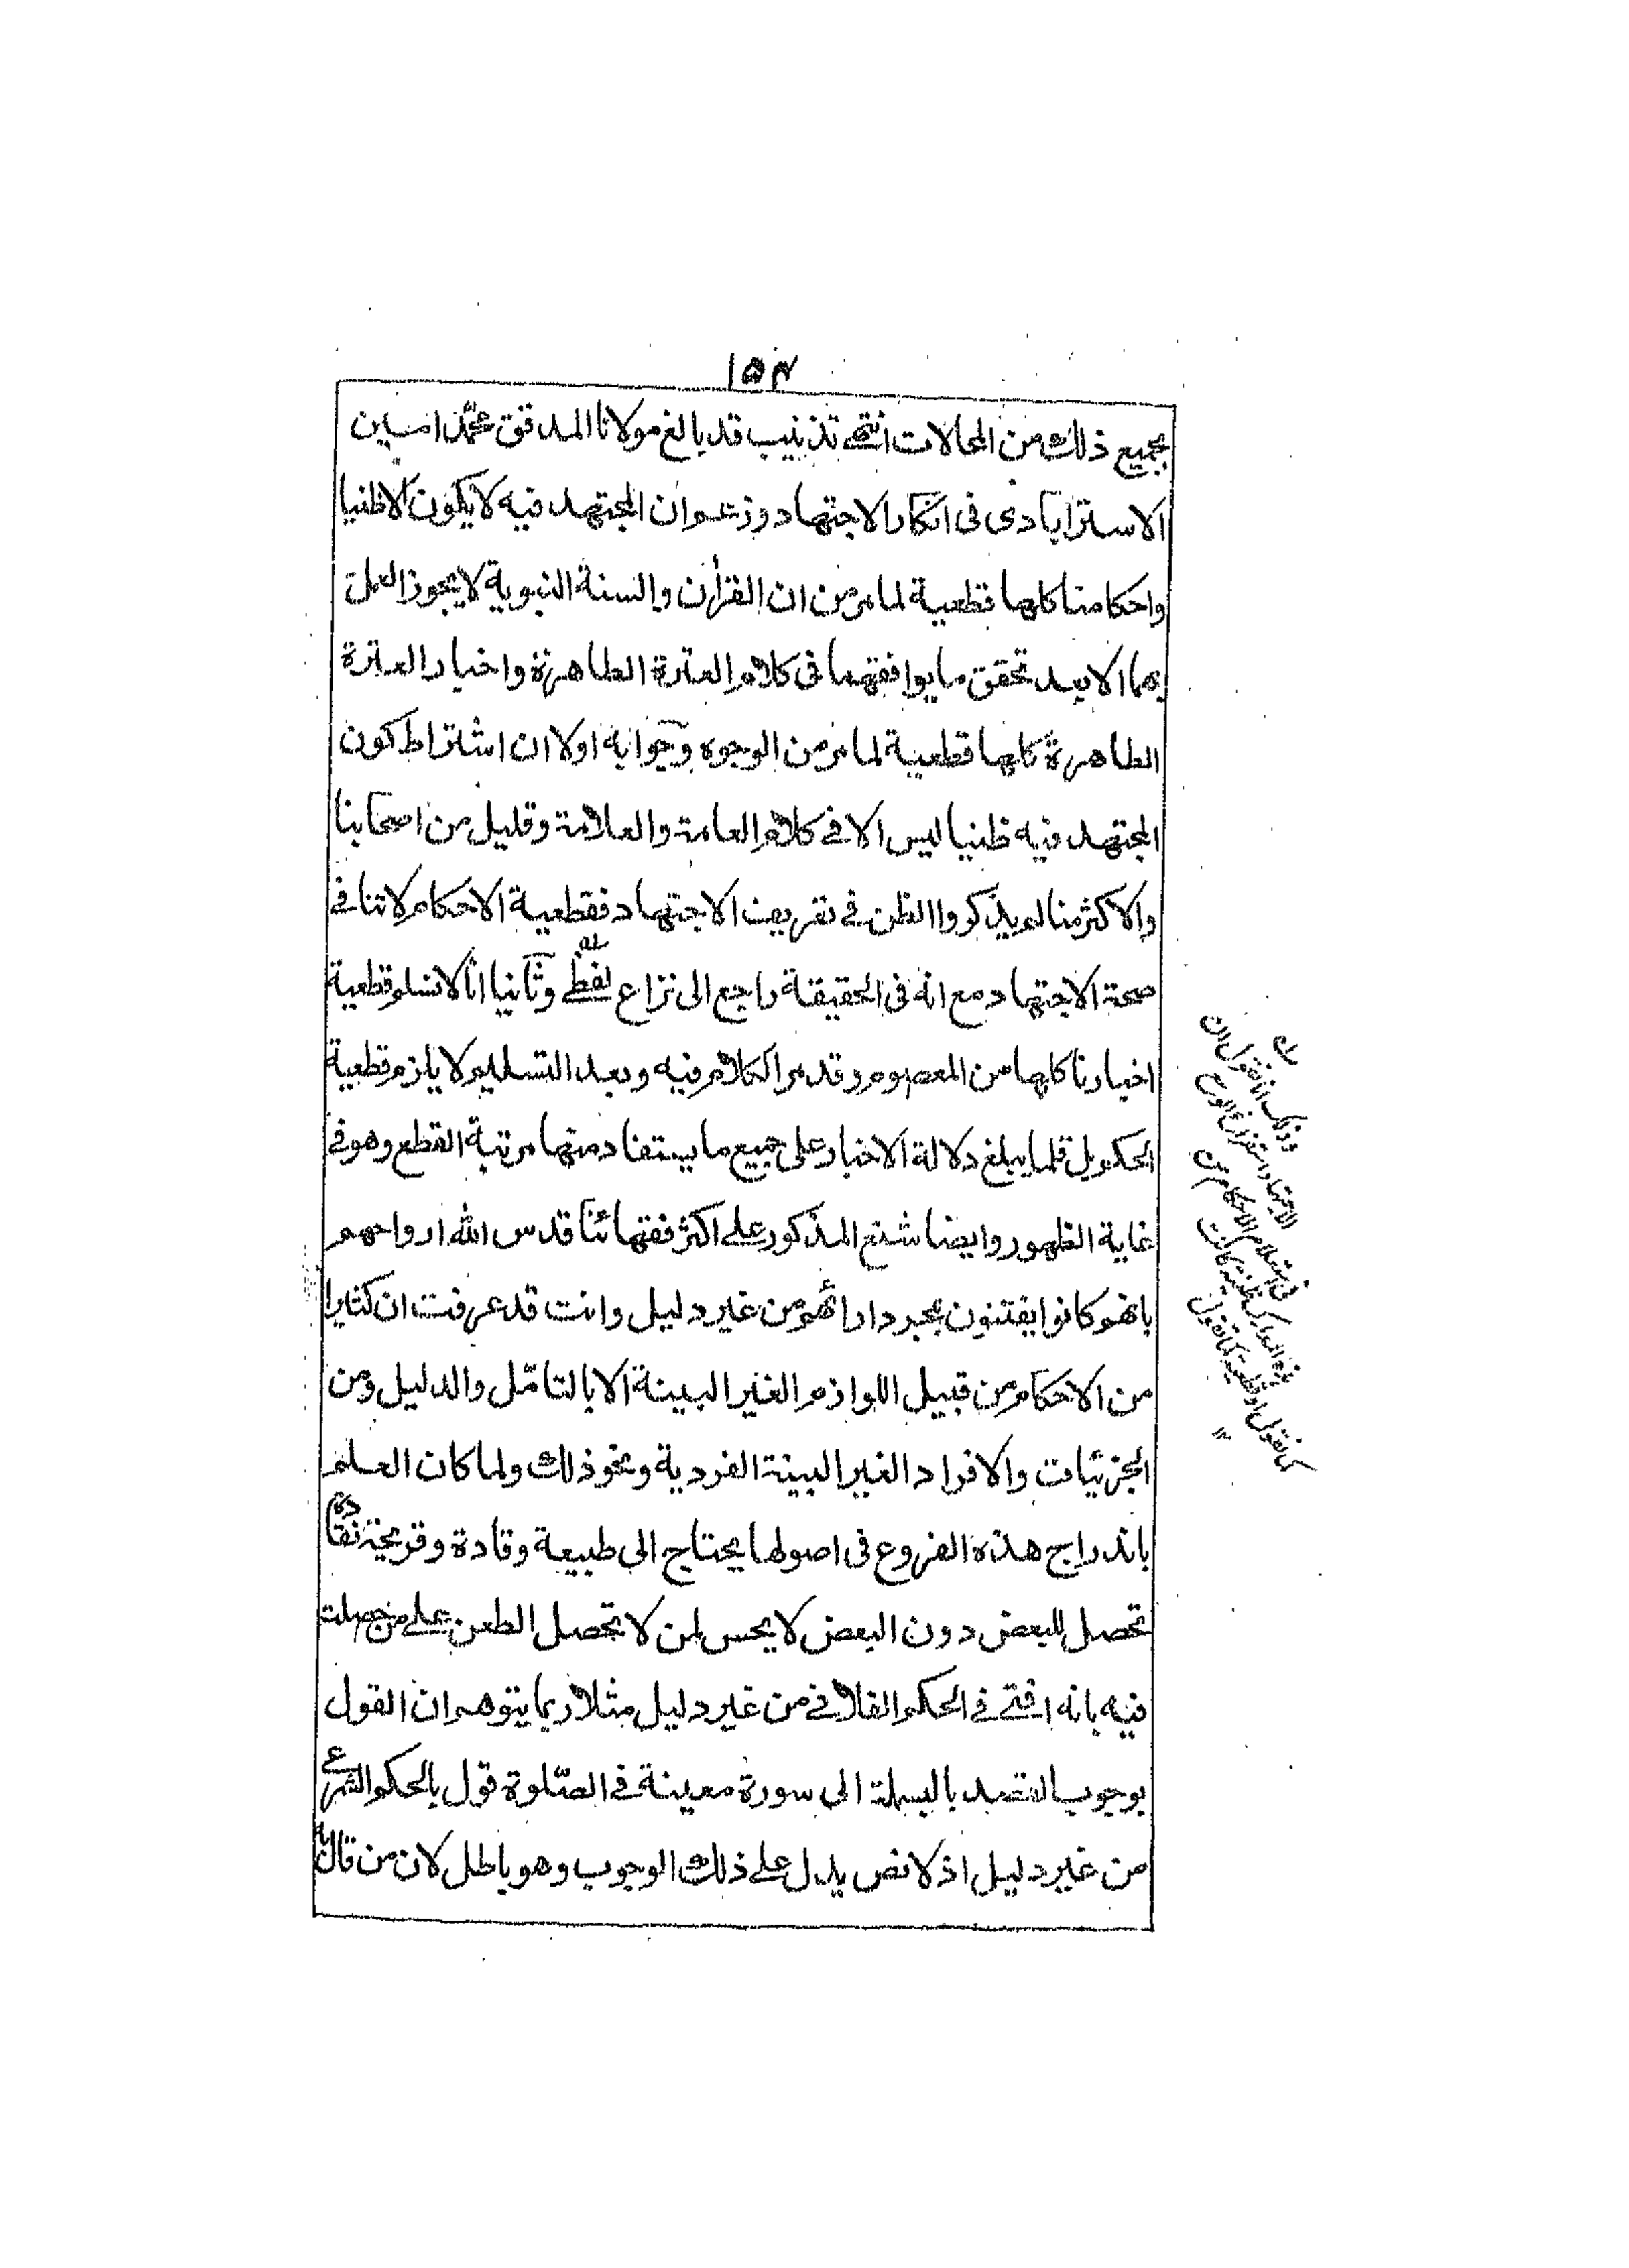 ١٥٤
بجميع ذلك من المحالات انتهى تذنيب قد بالغ مولانا المدقق محمّد امين
الاسترابادى فى انكار الاجتهاد وزعم ان المجتهد فيه لا يكون الا ظنيا
واحكامنا كلها قطعية لما مر من ان القرأن والسنة النبوية لا يجوز العمل
بهما الا بعد تحقق ما يوافقهما فى كلام العترة الطاهرة واخبار العترة
الطاهرة كلها قطعية لما مر من الوجوه وجوابه اولا ان اشتراط كون
المجتهد فيه ظنيا ليس الا فى كلام العامة والعلامة وقليل من اصحابنا
والاكثر منا لم يذكروا الظن فى تعريف الاجتهاد فقطعية الاحكام لا تنافى
صحة الاجتهاد مع انه فى الحقيقة راجع الى نزاع لفظى وثانيا انا لا نسلم قطعية
اخبارنا كلها من المعصوم وقد مر الكلام فيه وبعد التسليم لا يلزم قطعية
الحكم بل قلما يبلغ دلالة الاخبار على جميع ما يستفاد منها مرتبة القطع وهو فى
غاية الظهور وايضا شنع المذكور على اكثر فقهائنا قدس الله ارواحهم
بانهم كانوا يفتون بمجرد ارائهم من غير دليل وانت قد عرفت ان كثيرا
من الاحكام من قبيل اللوازم الغير البينة الا بالتامّل والدليل ومن
الجزئيات والافراد الغير البينة الفردية ونحو ذلك ولما كان العلم
باندراج هذه الفروع فى اصولها يحتاج الى طبيعة وقادة وقريحة نقادة
تحصل للبعض دون البعض لا يحسن لمن لا تحصل الطعن على من حصلت
فيه بانه افتى فى الحكم الفلانى من غير دليل مثلا ربما يتوهم ان القول
بوجوب القصد بالبسملة الى سورة معينة فى الصّلوة قول بالحكم الشرعى
من غير دليل اذ لا نص يدل على ذلك الوجوب وهو باطل لان من قال به
وذلك انا نقول ان
الاجتهاد استفراغ الوسع
فى استعلام الاحكام من
كما نقول او قطعية كما تقول